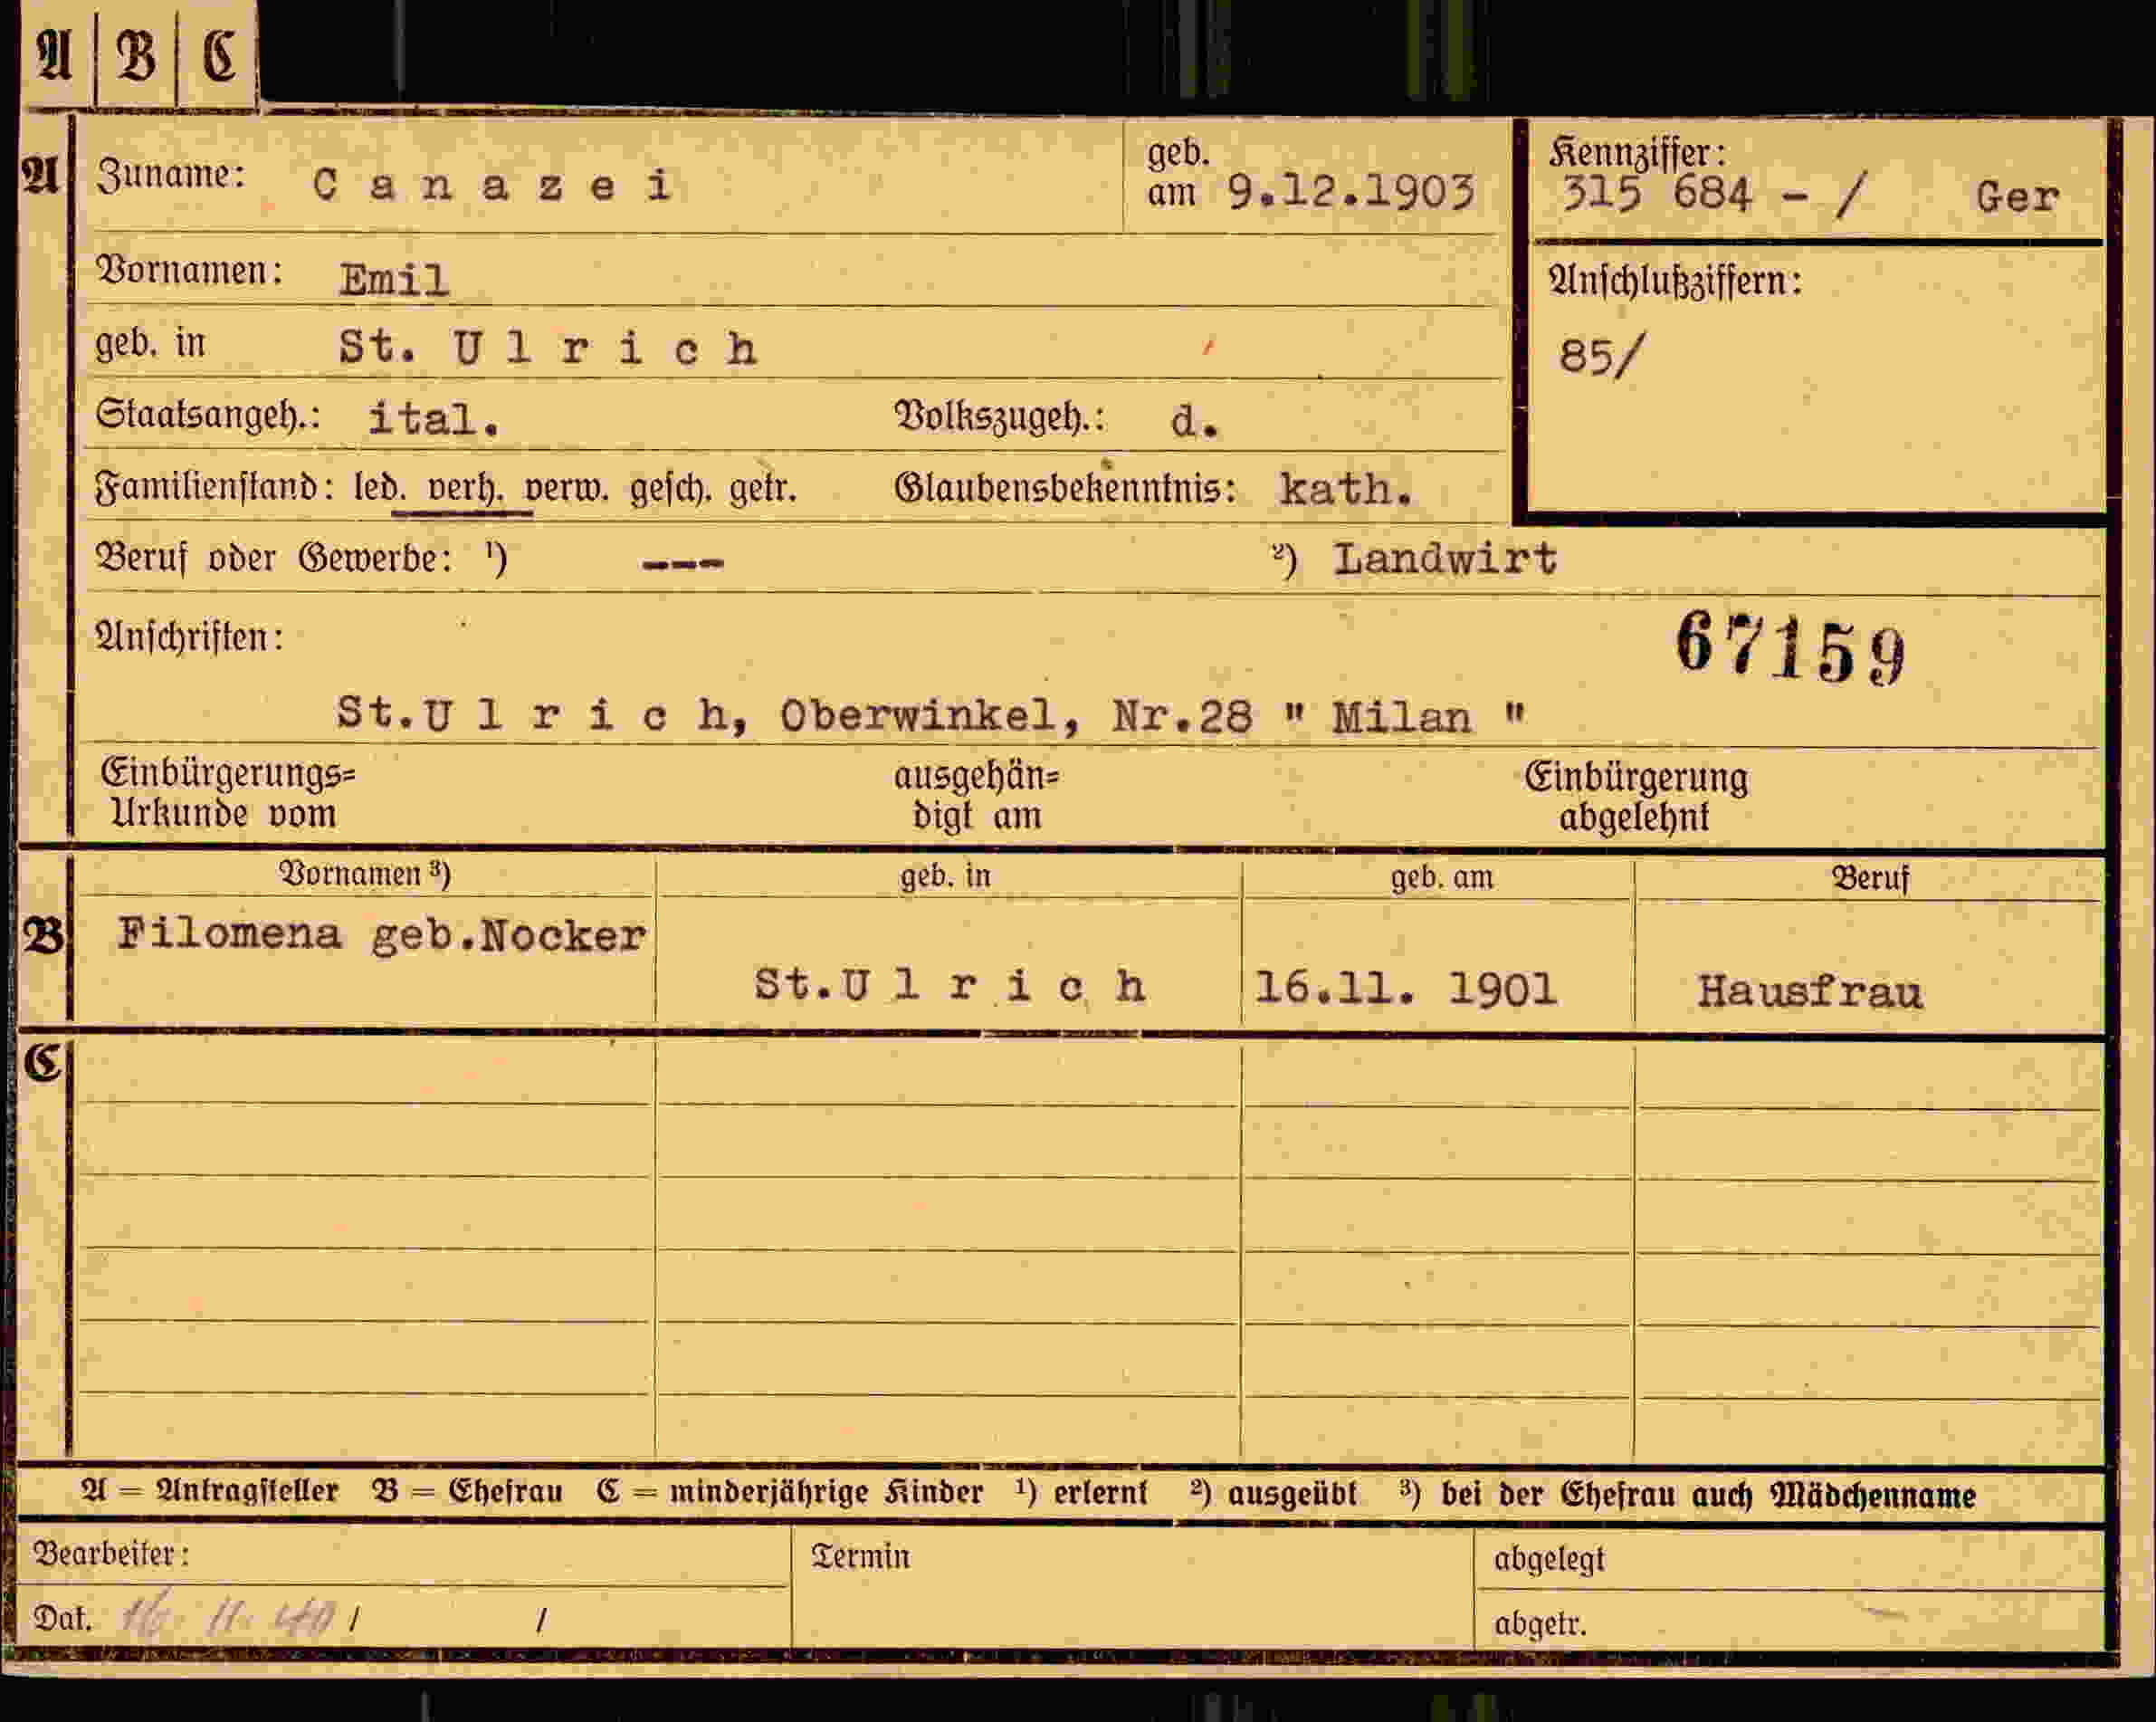 A B C
A Zuname: C a n a z e i geb. am 9.12.1903
Kennziffer: 315 684 - / Ger
Vornamen: Emil
Anschlußziffern:
geb. in St. U l r i c h
85/
Staatsangeh.: ital. Volkszugeh.: d.
Familienstand: led. verh. verw. gesch. getr. Glaubensbekenntnis: kath.
Beruf oder Gewerbe: ¹) --- ²) Landwirt
Anschriften: 67159
St.U l r i c h, Oberwinkel, Nr.28 " Milan "
Einbürgerungs= ausgehän= Einbürgerung
Urkunde vom digt am abgelehnt
Vornamen ³) geb. in geb. am Beruf
B Filomena geb.Nocker
St.U l r i c h 16.11. 1901 Hausfrau
C
A = Antragsteller B = Ehefrau C = minderjährige Kinder ¹) erlernt ²) ausgeübt ³) bei der Ehefrau auch Mädchenname
Bearbeiter: Termin abgelegt
Dat. 16. 11. 40 / / abgetr.